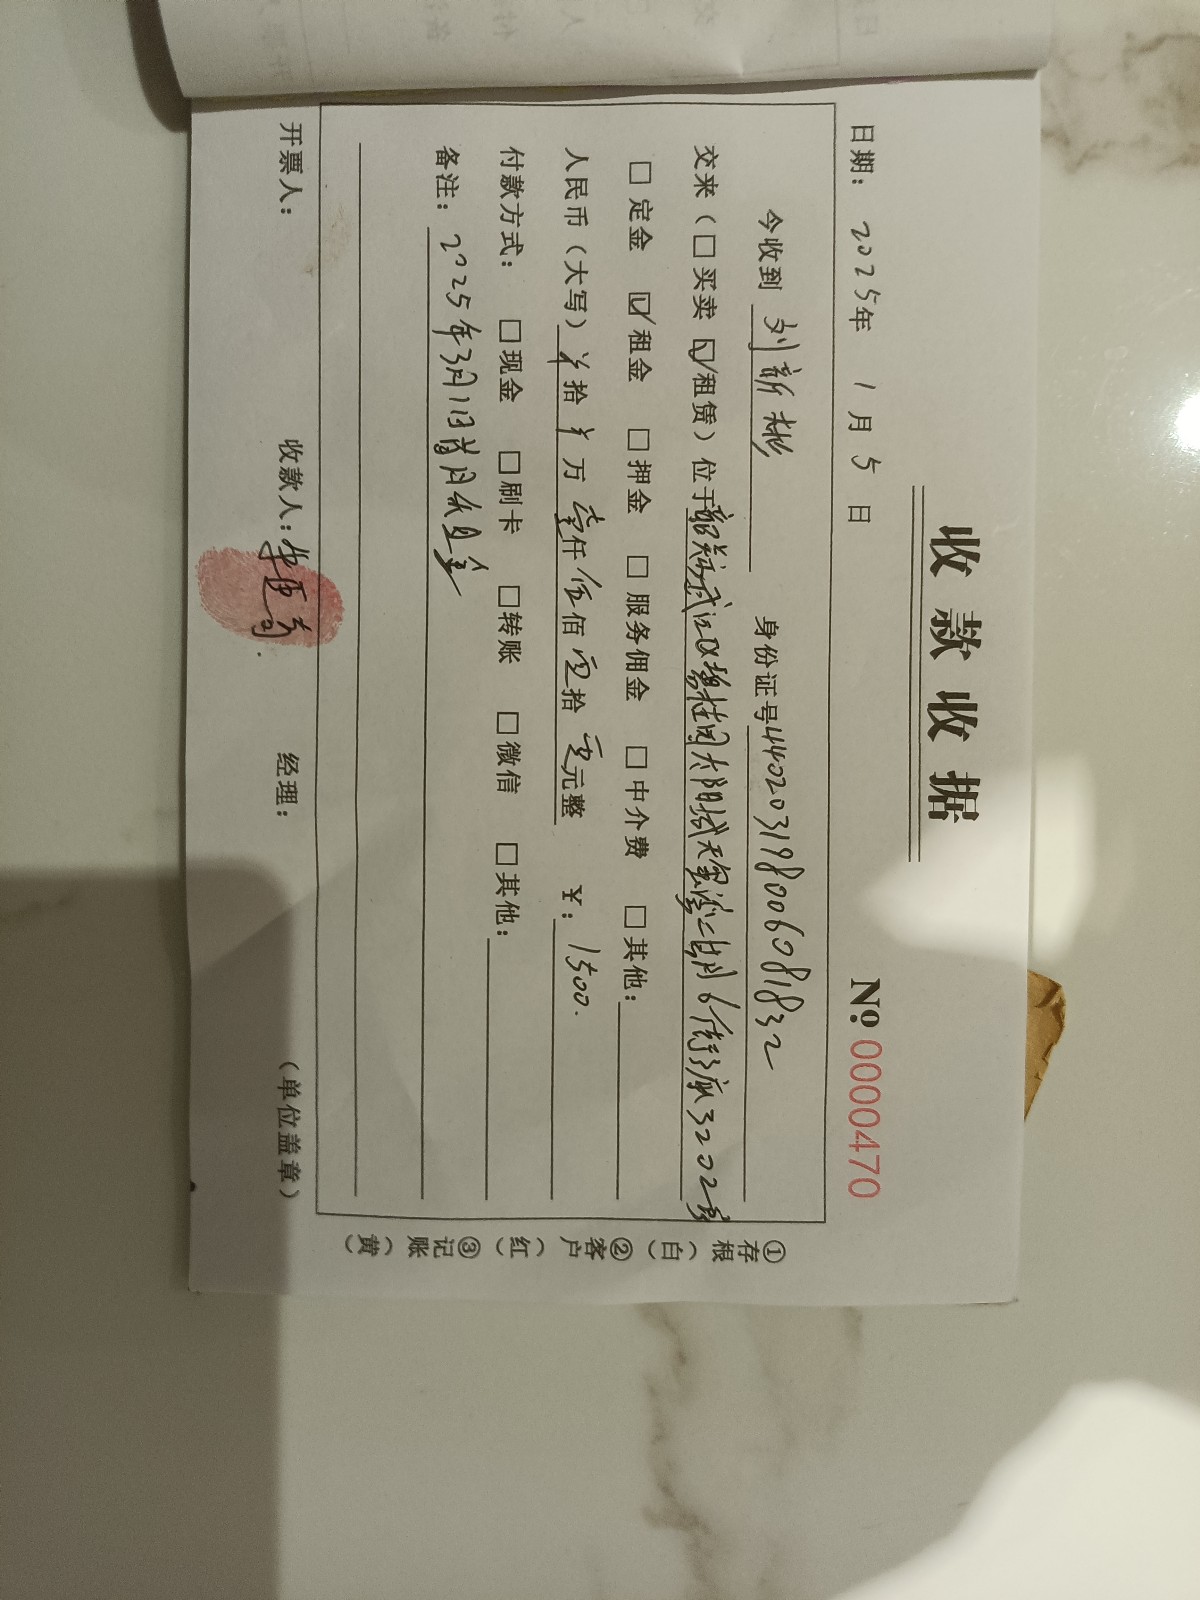 收款收据
№ 0000470
日期： 2025年 1月 5日
今收到 刘新彬 身份证号440203198006081832
交来（□买卖 ☑租赁）位于韶关市武江区 太阳城 6 3202号
□定金 ☑租金 □押金 □服务佣金 □中介费 □其他：
人民币（大写） 拾 万 壹仟伍佰零拾零元整 ￥：1500.
付款方式： □现金 □刷卡 □转账 □微信 □其他：
备注：2025年3月1日首月租金
开票人： 收款人： 经理： （单位盖章）
①存根（白） ②客户（红） ③记账（黄）